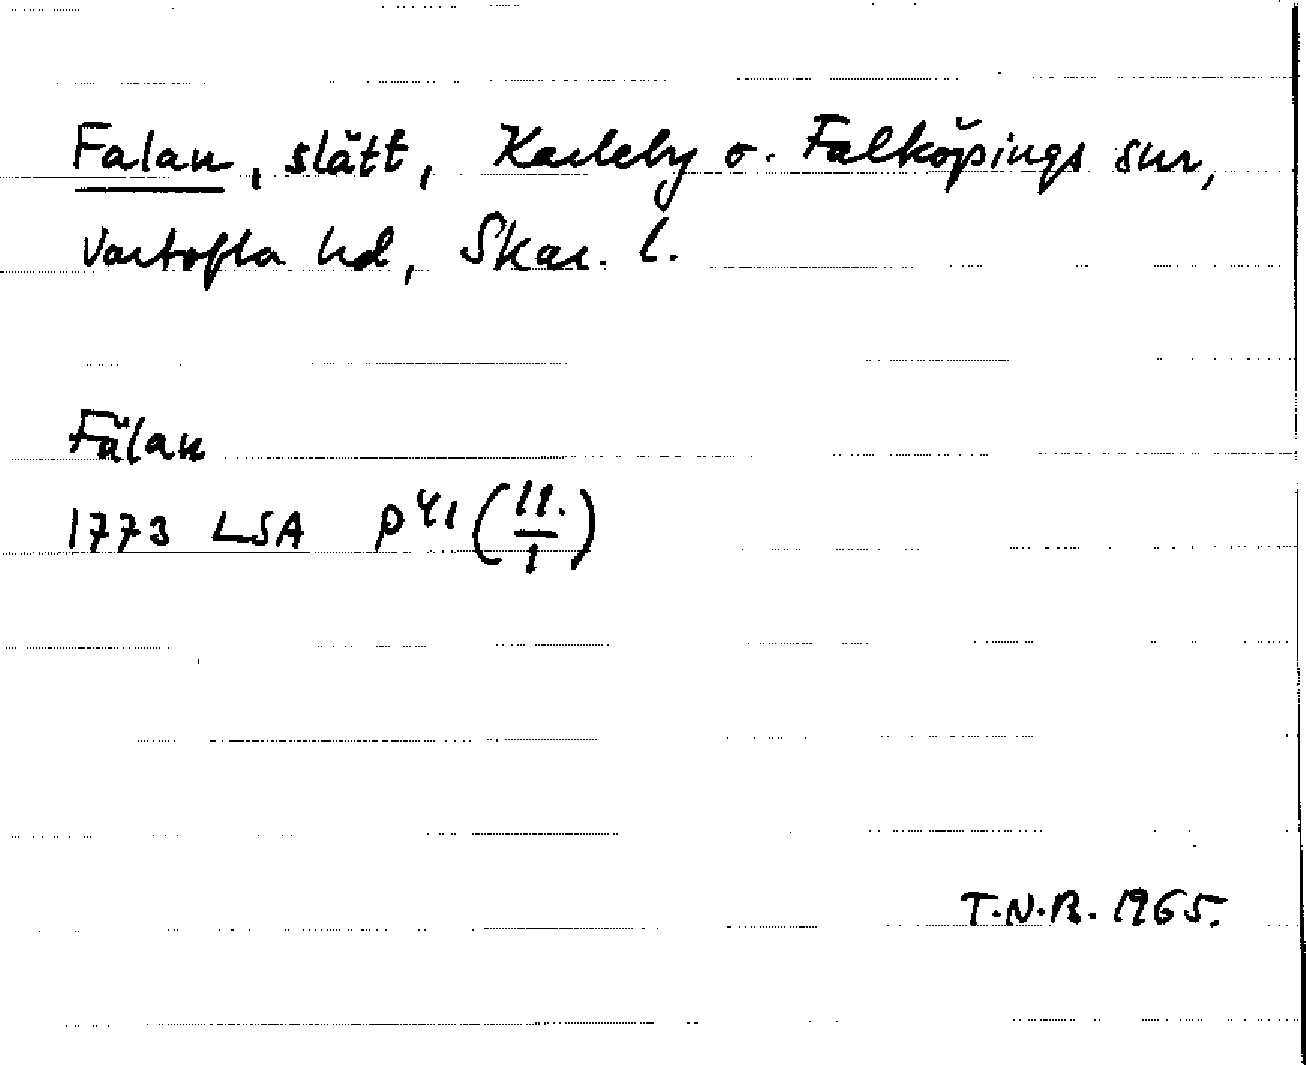 Falan, slätt, Karleby o. Falköpings snr,
Vartofta hd, Skar. l.
Fälan
1773 LSA P 41 (11./1)
T.N.B. 1965.